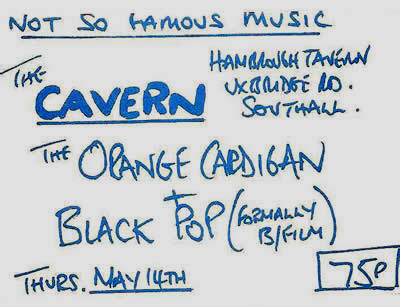 NOT SO FAMOUS MUSIC
THE CAVERN
HAMBROUGH TAVERN
UXBRIDGE RD.
SOUTHALL.
THE ORANGE CARDIGAN
BLACK POP (FORMALLY
B/FILM)
THURS. MAY 14TH
75P